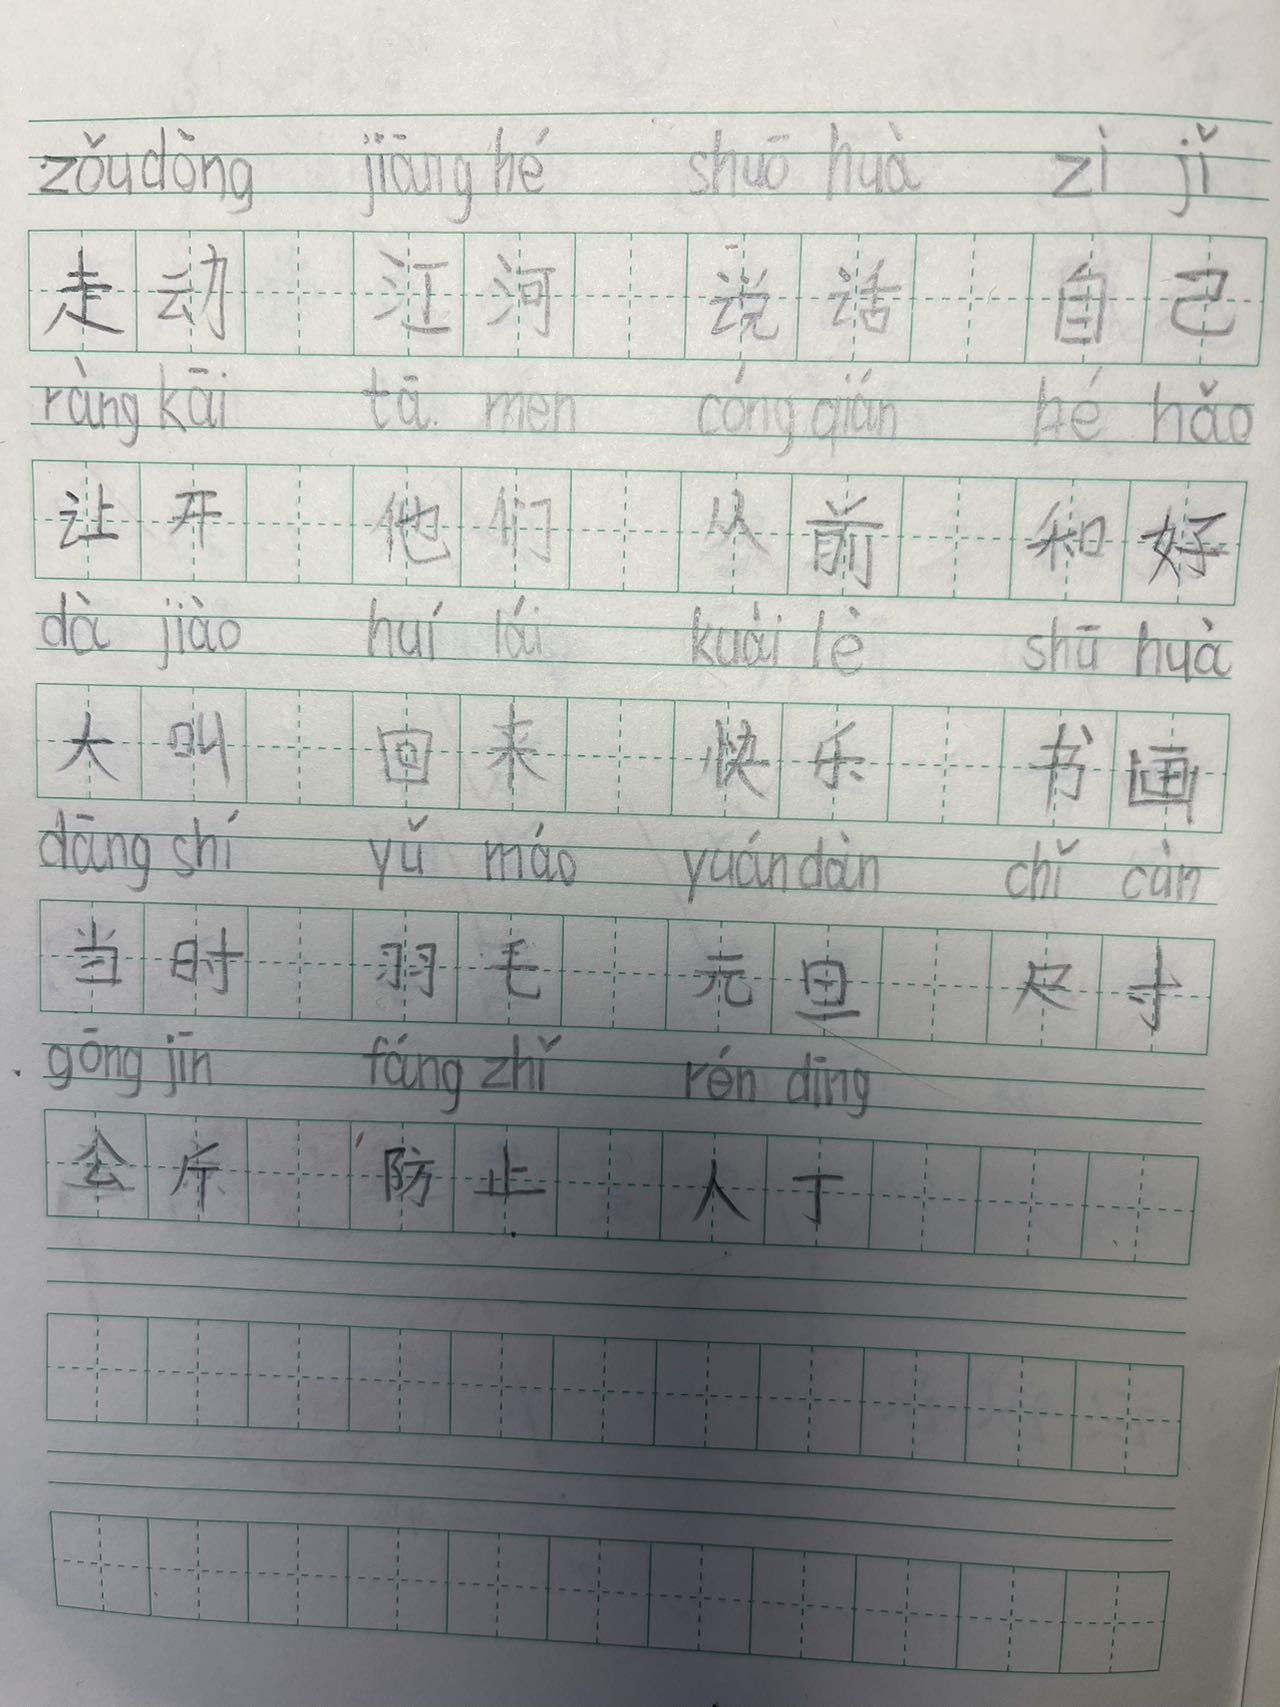 zǒu dòng jiāng hé shuō huà zì jǐ
走动 江河 说话 自己
ràng kāi tā men cóng qián hé hǎo
让开 他们 从前 和好
dà jiào huí lái kuài lè shū huà
大叫 回来 快乐 书画
dāng shí yǔ máo yuán dàn chǐ cùn
当时 羽毛 元旦 尺寸
gōng jīn fáng zhǐ rén dīng
公斤 防止 人丁